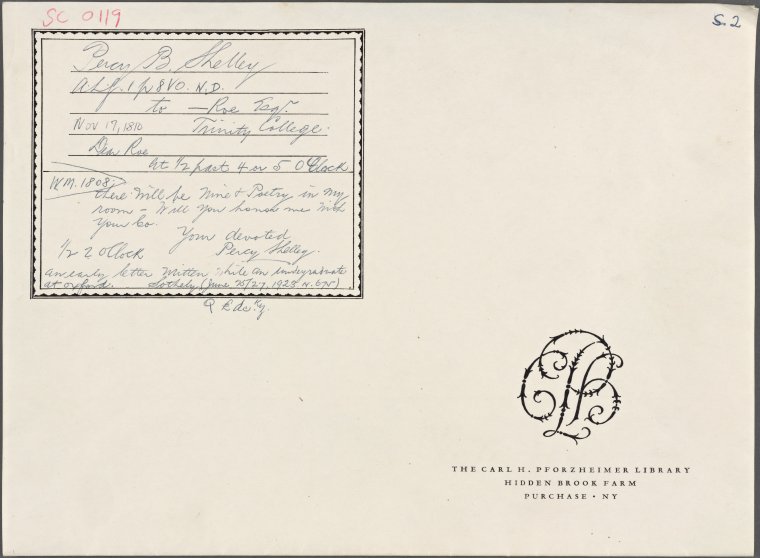 SC 0119
S. 2
Percy B. Shelley
A.L.S. 1 p 8vo. N.D.
to — Roe Esqr.
Nov 17, 1810 Trinity College.
Dear Roe
At 1/2 past 4 or 5 O'Clock
WM. 1808.
there Will be Wine & Poetry in my
room – Will you honor me With
your Co.
Your devoted
1/2 2 O'Clock Percy Shelley.
an early letter Written While an undergraduate
at oxford. Sotheby (June 25/27, 1928 N. 675)
THE CARL H. PFORZHEIMER LIBRARY
HIDDEN BROOK FARM
PURCHASE · NY